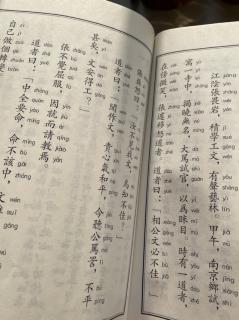 江陰張畏岩,積學工文,有聲藝林。甲午,南京鄉試,
寓一寺中,揭曉無名,大罵試官,以為眯目。時有一道者,
在傍微笑,張遽移怒道者。道者曰:「相公文必不佳。」
張益怒曰:「汝不見我文,烏知不佳?」
道者曰:「聞作文,貴心氣和平,今聽公罵詈,不平
甚矣,文安得工?」
張不覺屈服,因就而請教焉。
道者曰:「中全要命,命不該中,文雖
自己做個轉變